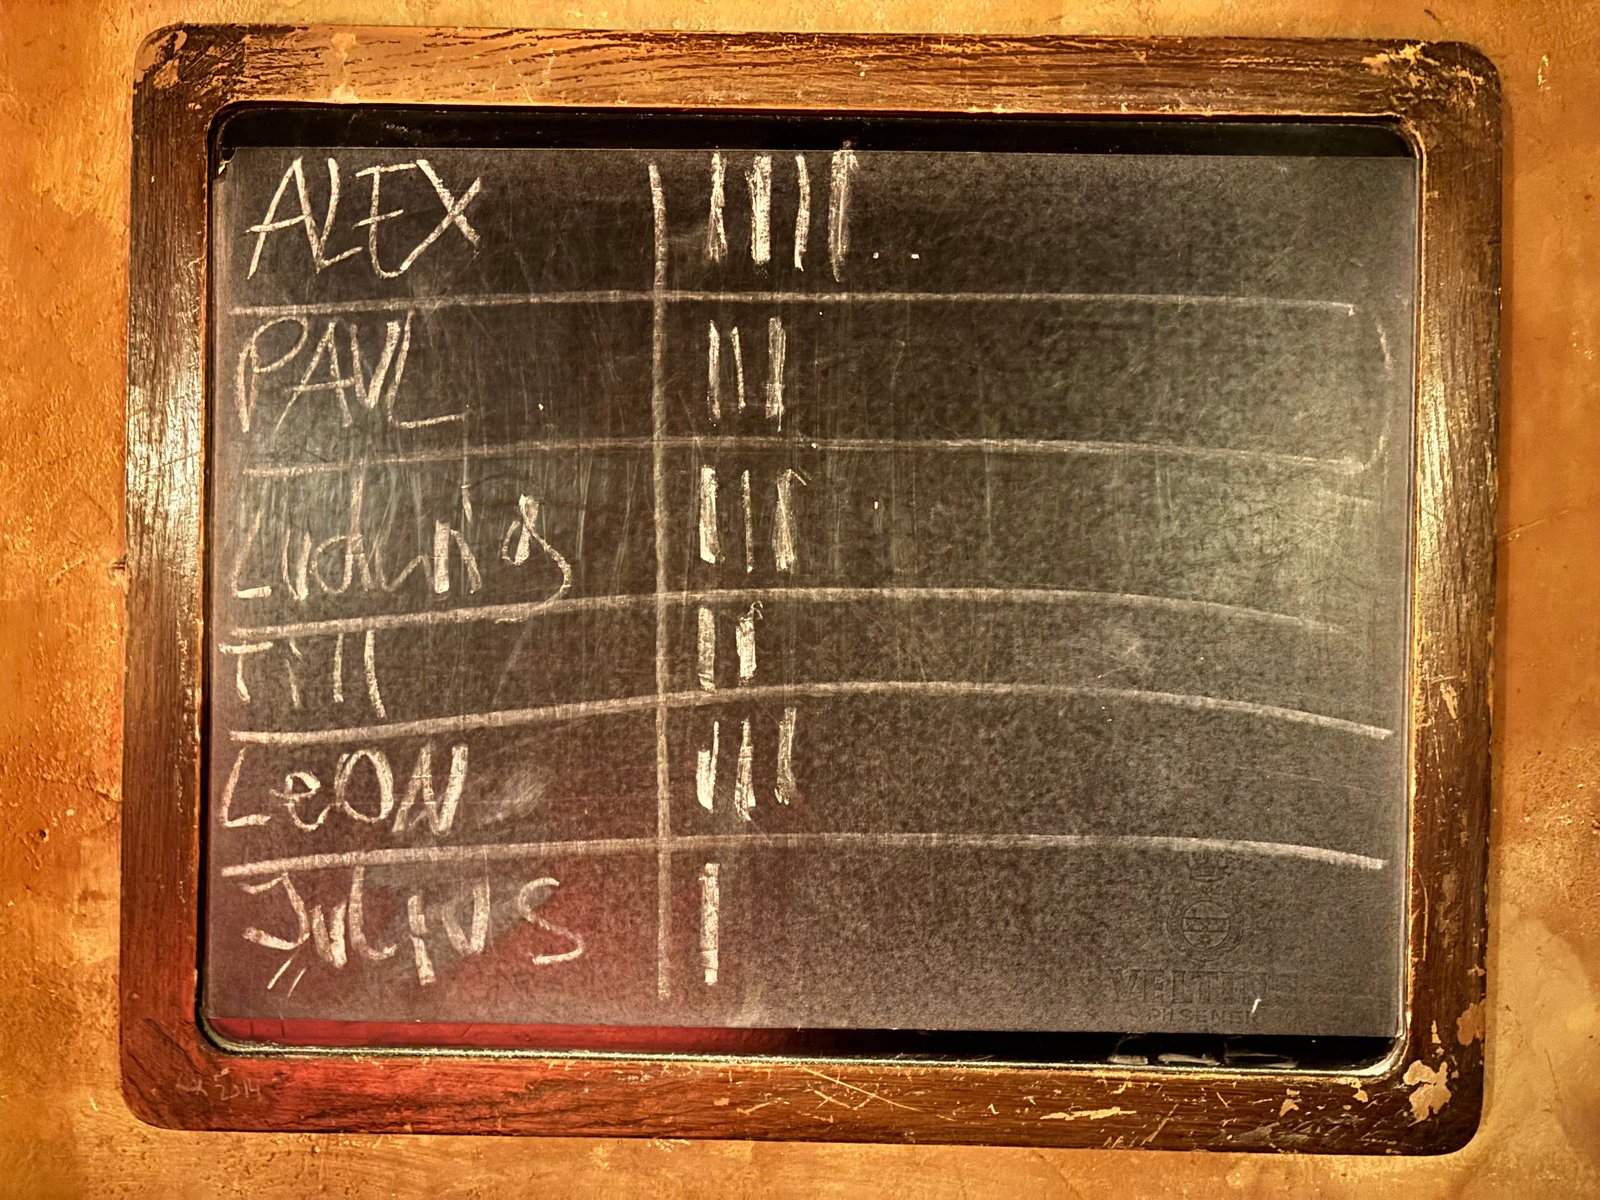 ALEX IIII..
PAUL III
Ludwig III
Till II
LeON III
JULIUS I
VELTINS
PILSENER